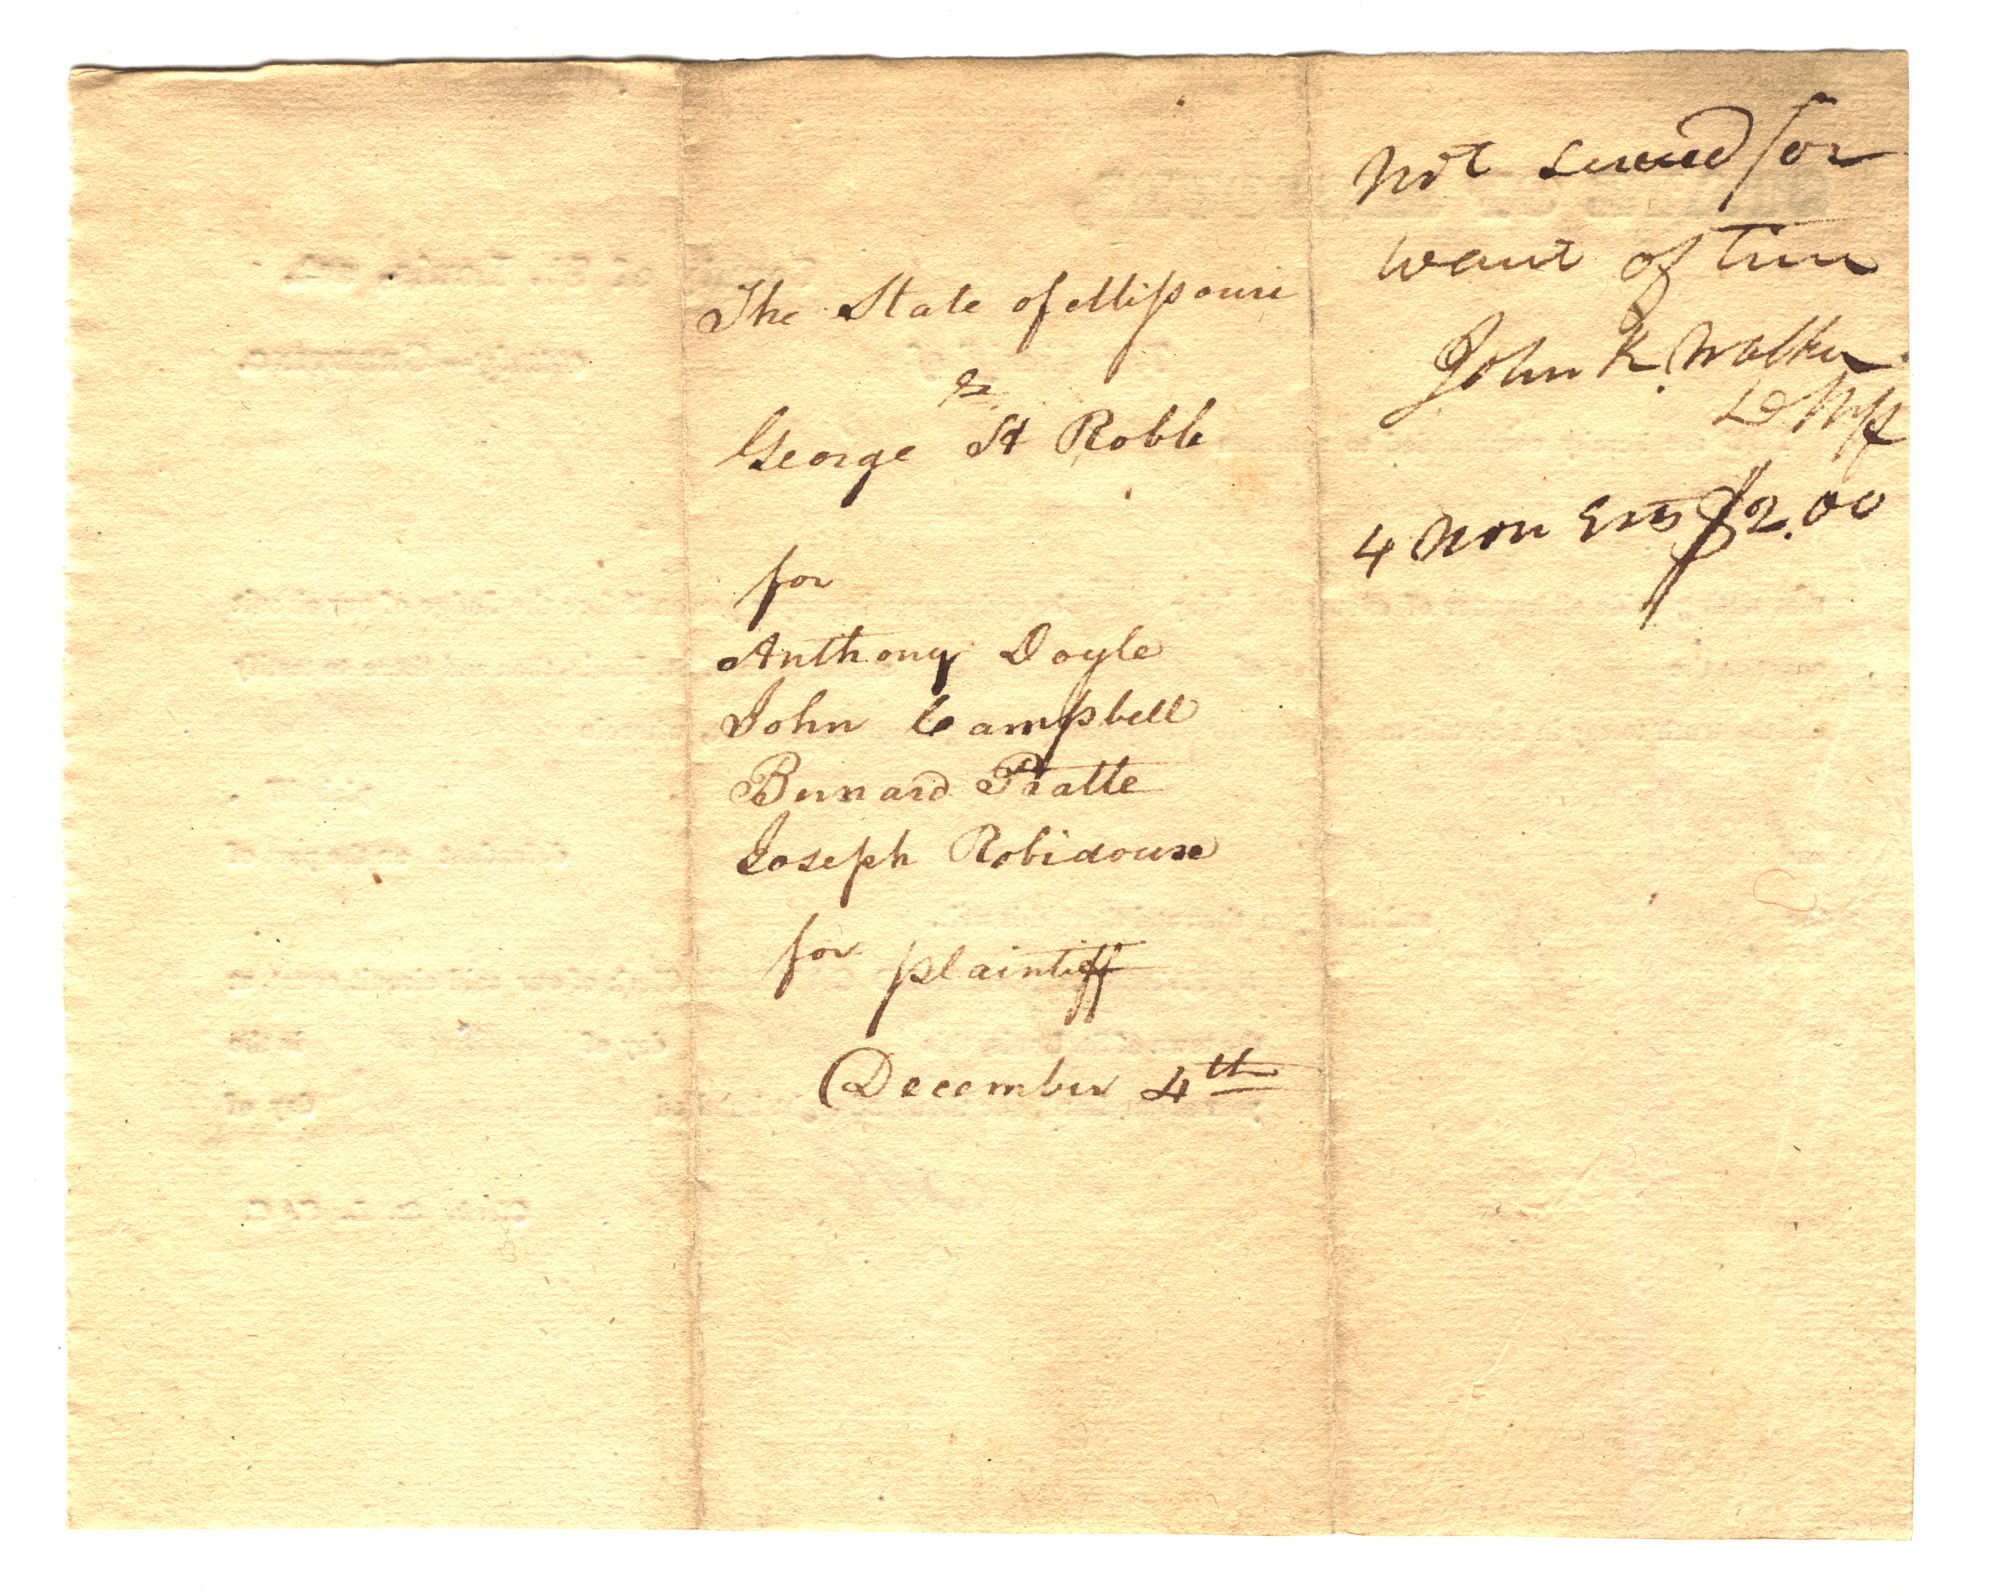 The State of Missouri
vs
George St Roble
for
Anthony Doyle
John Campbell
Bernard Pratte
Joseph Robidoux
for plaintiff
December 4th
Not served for
want of time
John K. Walker
4 Non Ests $2.00